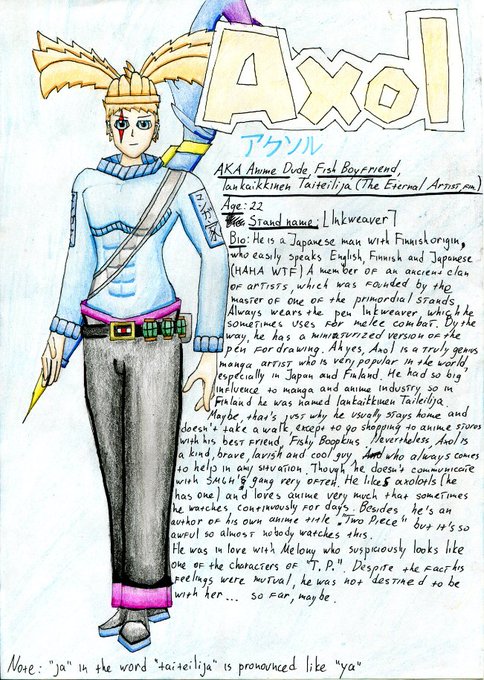 Axol
アクソル
AKA Anime Dude, Fish Boyfriend,
Iankaikkinen Taiteilija (The Eternal Artist, fin.)
Age: 22
Stand name: [Inkweaver]
Bio: He is a Japanese man with Finnish origin,
who easily speaks English, Finnish and Japanese
(HAHA WTF) A member of an ancient clan
of artists, which was founded by the
master of one of the primordial stands.
Always wears the pen Inkweaver, which he
sometimes uses for melee combat. By the
way, he has a miniaturized version of the
pen for drawing. Ah yes, Axol is a truly genius
manga artist who is very popular in the world,
especially in Japan and Finland. He had so big
influence to manga and anime industry so in
Finland he was named Iankaikkinen Taiteilija.
Maybe, that's just why he usually stays home and
doesn't take a walk, except to go shopping to anime stores
with his best friend, Fishy Boopkins. Nevertheless, Axol is
a kind, brave, lavish and cool guy who always comes
to help in any situation. Though he doesn't communicate
with SMG4's gang very often. He likes axolotls (he
has one) and loves anime very much that sometimes
he watches continuously for days. Besides, he's an
author of his own anime title "Two Piece" but it's so
awful so almost nobody watches this.
He was in love with Melony who suspiciously looks like
one of the characters of "T.P.". Despite the fact his
feelings were mutual, he was not destined to be
with her... so far, maybe.
Note: "ja" in the word "taiteilija" is pronounced like "ya"